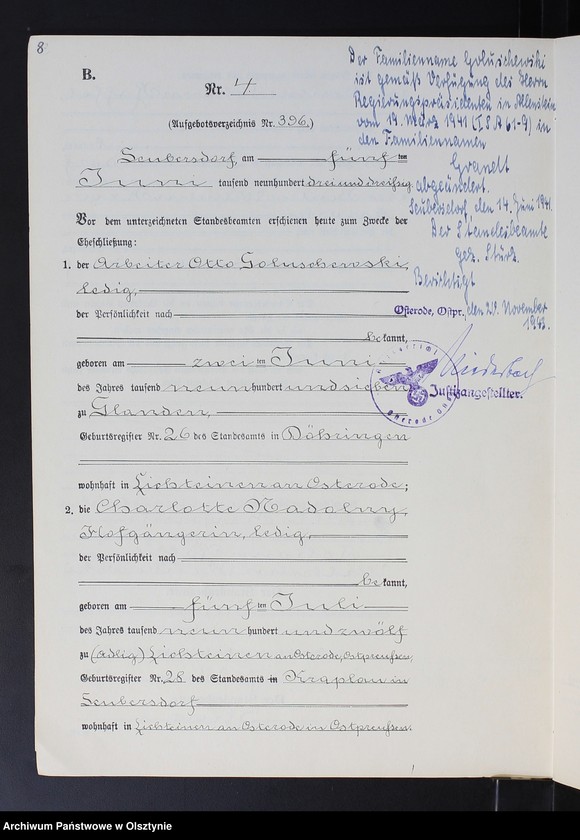 8
B.
Nr. 4
(Aufgebotsverzeichnis Nr. 396.)
Seubersdorf, am fünften
Juni tausend neunhundert dreiunddreißig
Vor dem unterzeichneten Standesbeamten erschienen heute zum Zwecke der
Eheschließung:
1. der Arbeiter Otto Goluschewski,
ledig,
der Persönlichkeit nach
be kannt,
geboren am zweiten Juni
des Jahres tausend neunhundert und sieben
zu Glanden,
Geburtsregister Nr. 26 des Standesamts in Döhringen
wohnhaft in Lichteinen an Osterode;
2. die Charlotte Nadolny,
Hofgängerin, ledig,
der Persönlichkeit nach
be kannt,
geboren am fünften Juli
des Jahres tausend neunhundert und zwölf
zu (Adlig) Lichteinen an Osterode, Ostpreußen,
Geburtsregister Nr. 28 des Standesamts in Kraplau in
Seubersdorf
wohnhaft in Lichteinen an Osterode in Ostpreußen
Der Familienname Goluschewski
ist gemäß Verfügung des Herrn
Regierungspräsidenten in Allenstein
vom 19. März 1941 (I.S.A 61-9) in
den Familiennamen
Grandt
abgeändert.
Seubersdorf, den 14. Juni 1941.
Der Standesbeamte
gez. Sturz.
Berichtigt
Osterode, Ostpr., den 29. November
1943.
Justizangestellter.
Archiwum Państwowe w Olsztynie